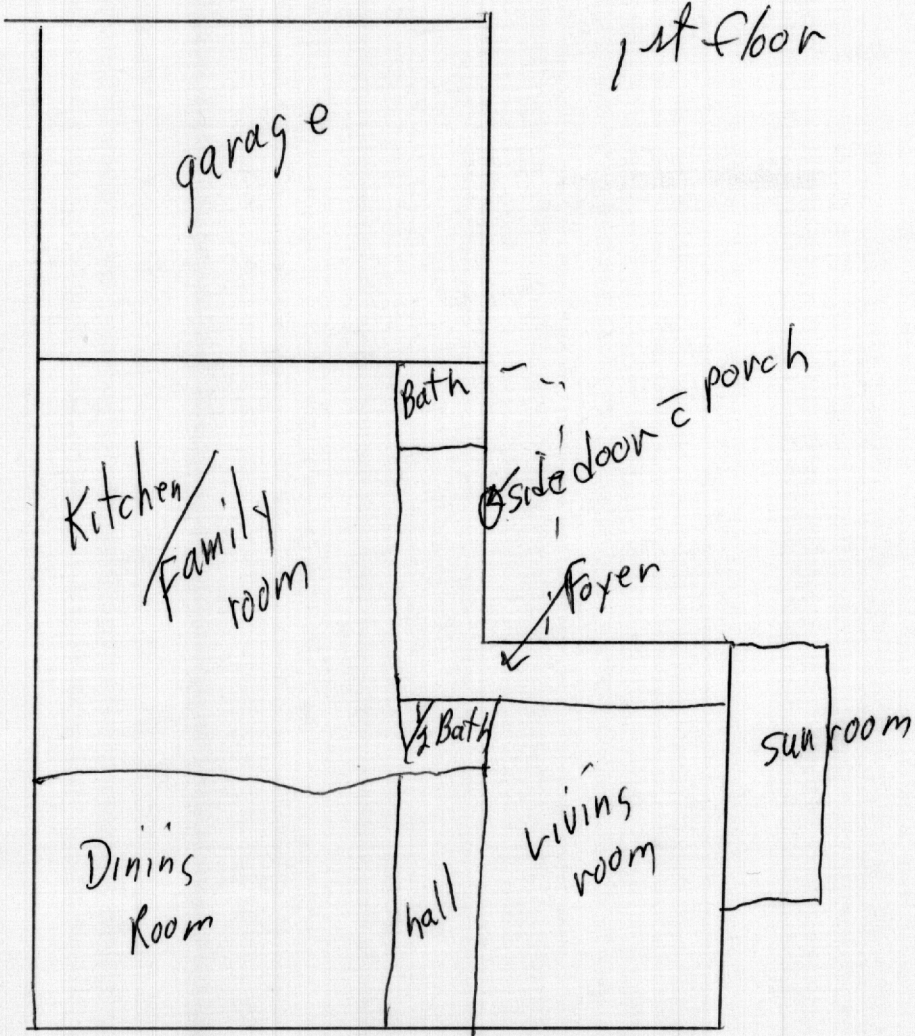 1st floor
garage
Bath
side door c̄ porch
Kitchen/
Family
room
Foyer
1/2 Bath
sun room
Living
room
Dining
Room
hall